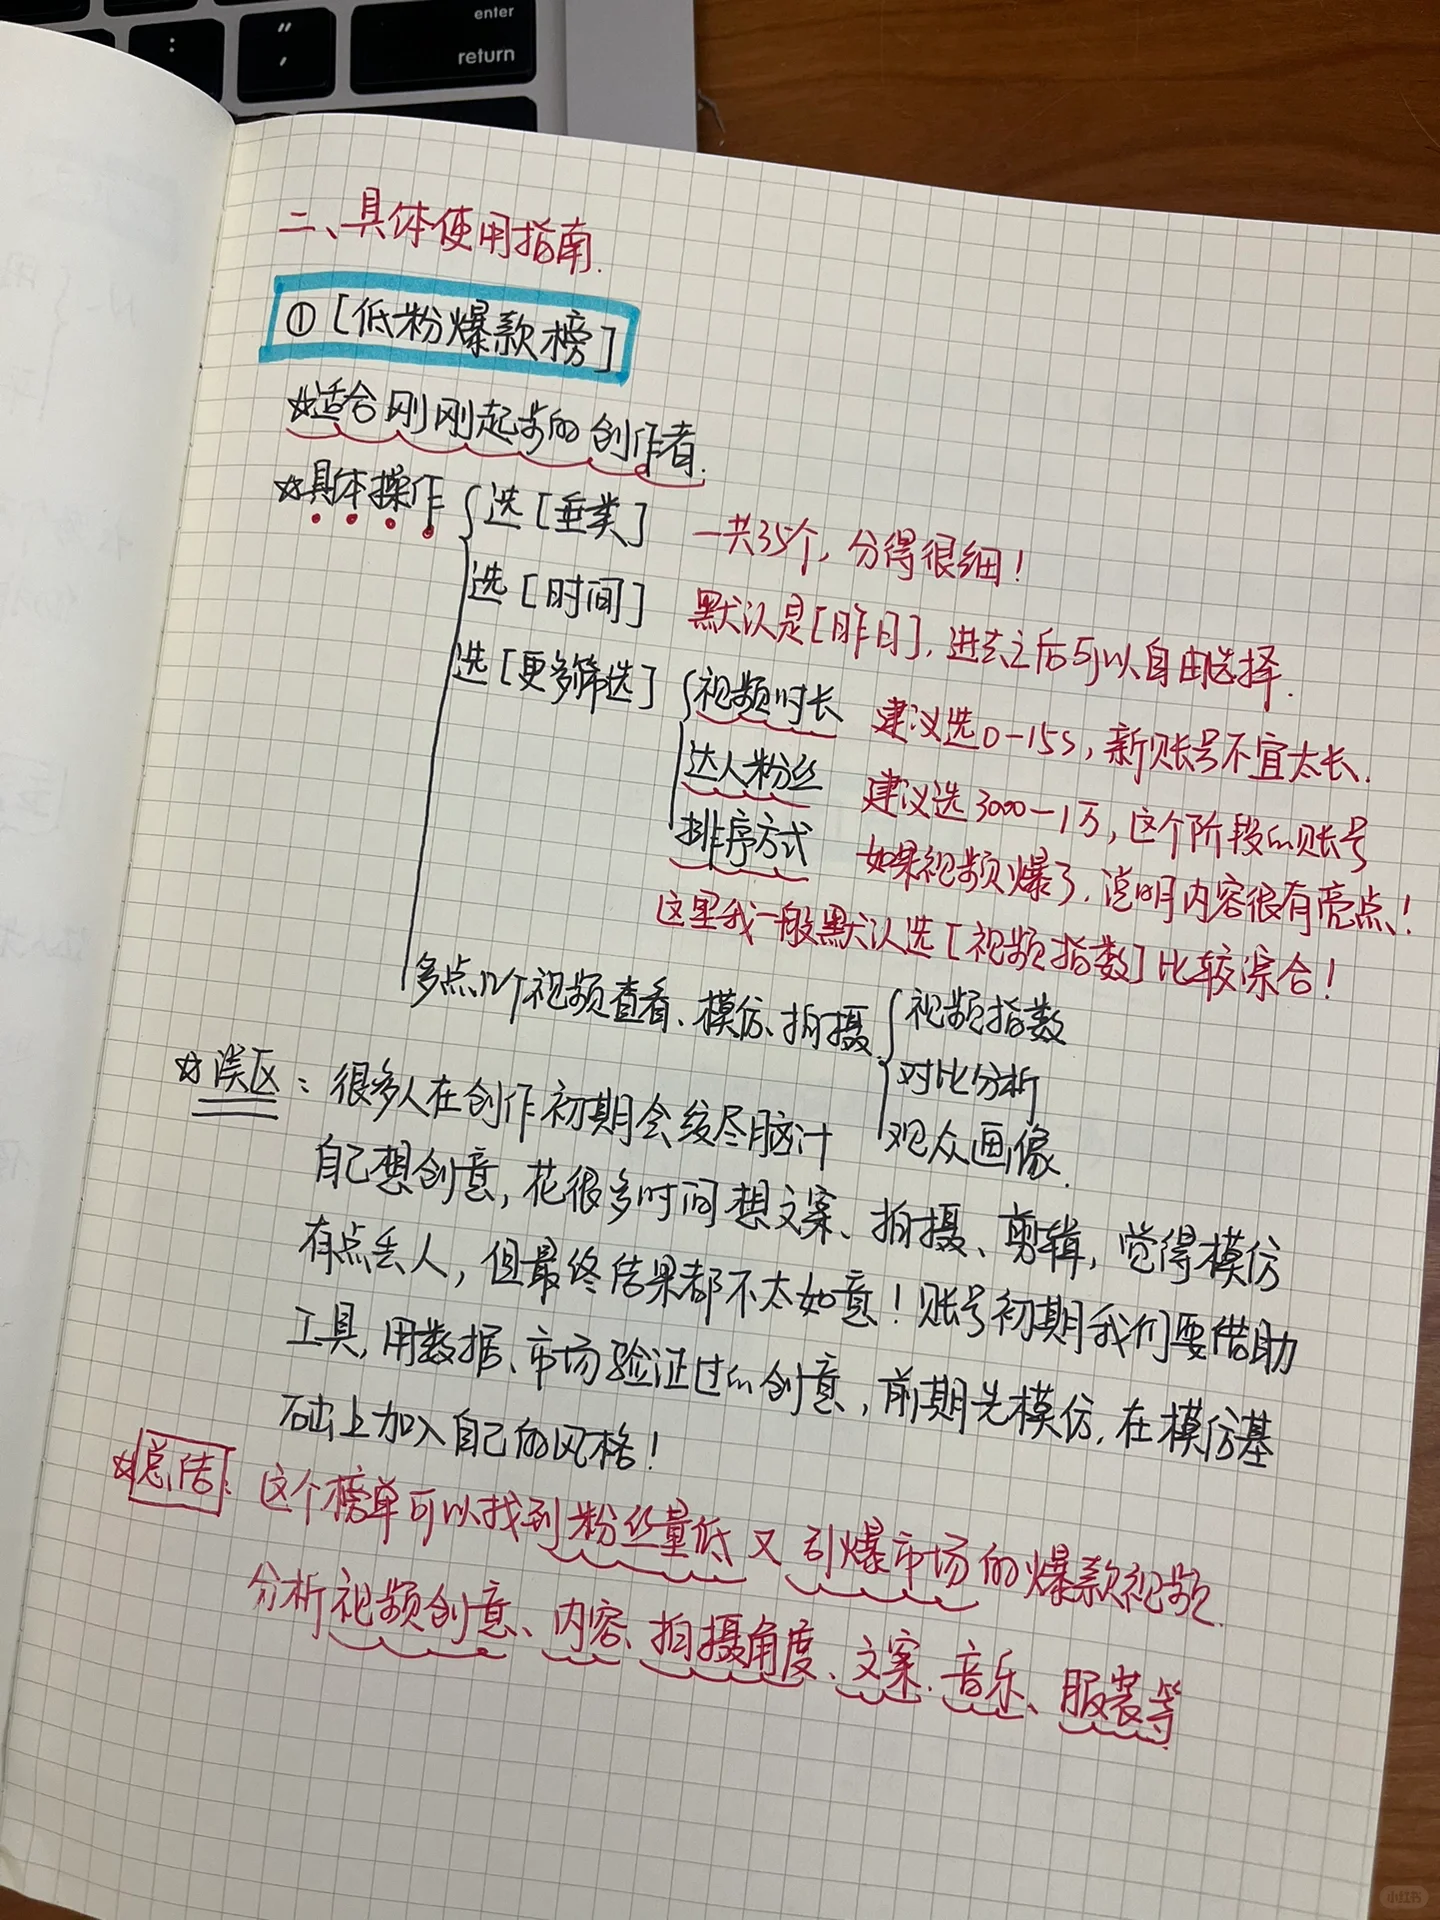 enter
return
: ;
" '
二、具体使用指南.
①[低粉爆款榜]
☆适合刚刚起步的创作者.
☆具体操作 选[垂类] 一共35个,分得很细!
选[时间] 默认是[昨日],进去之后可以自由选择.
选[更多筛选] 视频时长 建议选0-15s,新账号不宜太长.
达人粉丝 建议选3000-1万,这个阶段的账号
如果视频爆了,说明内容很有亮点!
排序方式
这里我一般默认选[视频指数]比较综合!
多点几个视频查看、模仿、拍摄 视频指数
对比分析
观众画像.
☆误区:很多人在创作初期会绞尽脑汁
自己想创意,花很多时间想文案、拍摄、剪辑,觉得模仿
有点丢人,但最终结果都不太如意!账号初期我们要借助
工具,用数据、市场验证过的创意,前期先模仿,在模仿基
础上加入自己的风格!
☆总结:这个榜单可以找到粉丝量低又引爆市场的爆款视频.
分析视频创意、内容、拍摄角度、文案、音乐、服装等
小红书